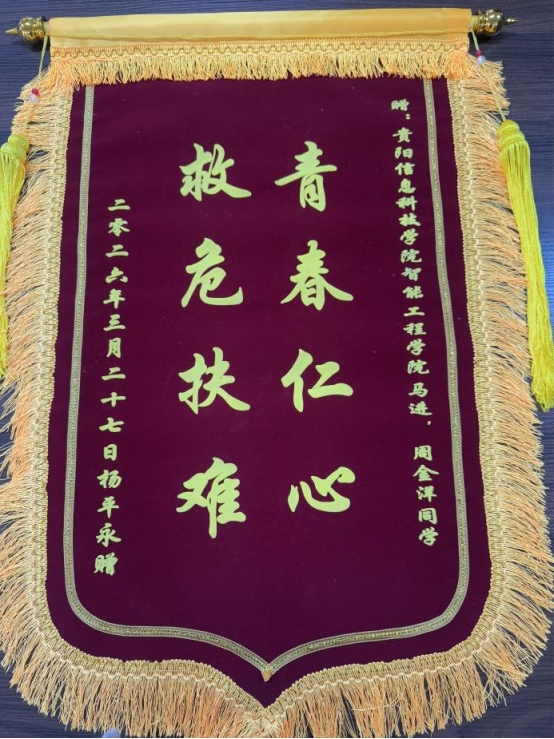 赠：贵阳信息科技学院智能工程学院马进，周金洋同学
青春仁心
救危扶难
二零二六年三月二十七日杨平永赠